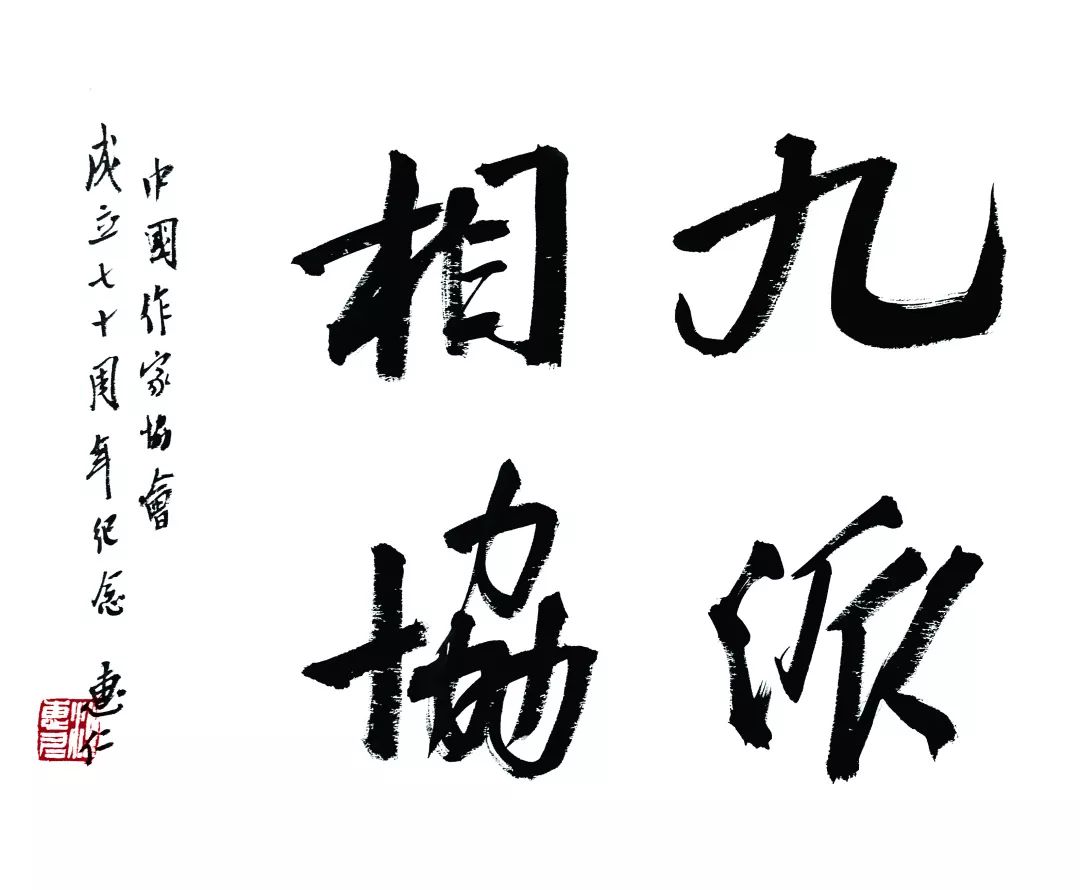 九派
相協
中國作家協會
成立七十周年纪念 惠仁